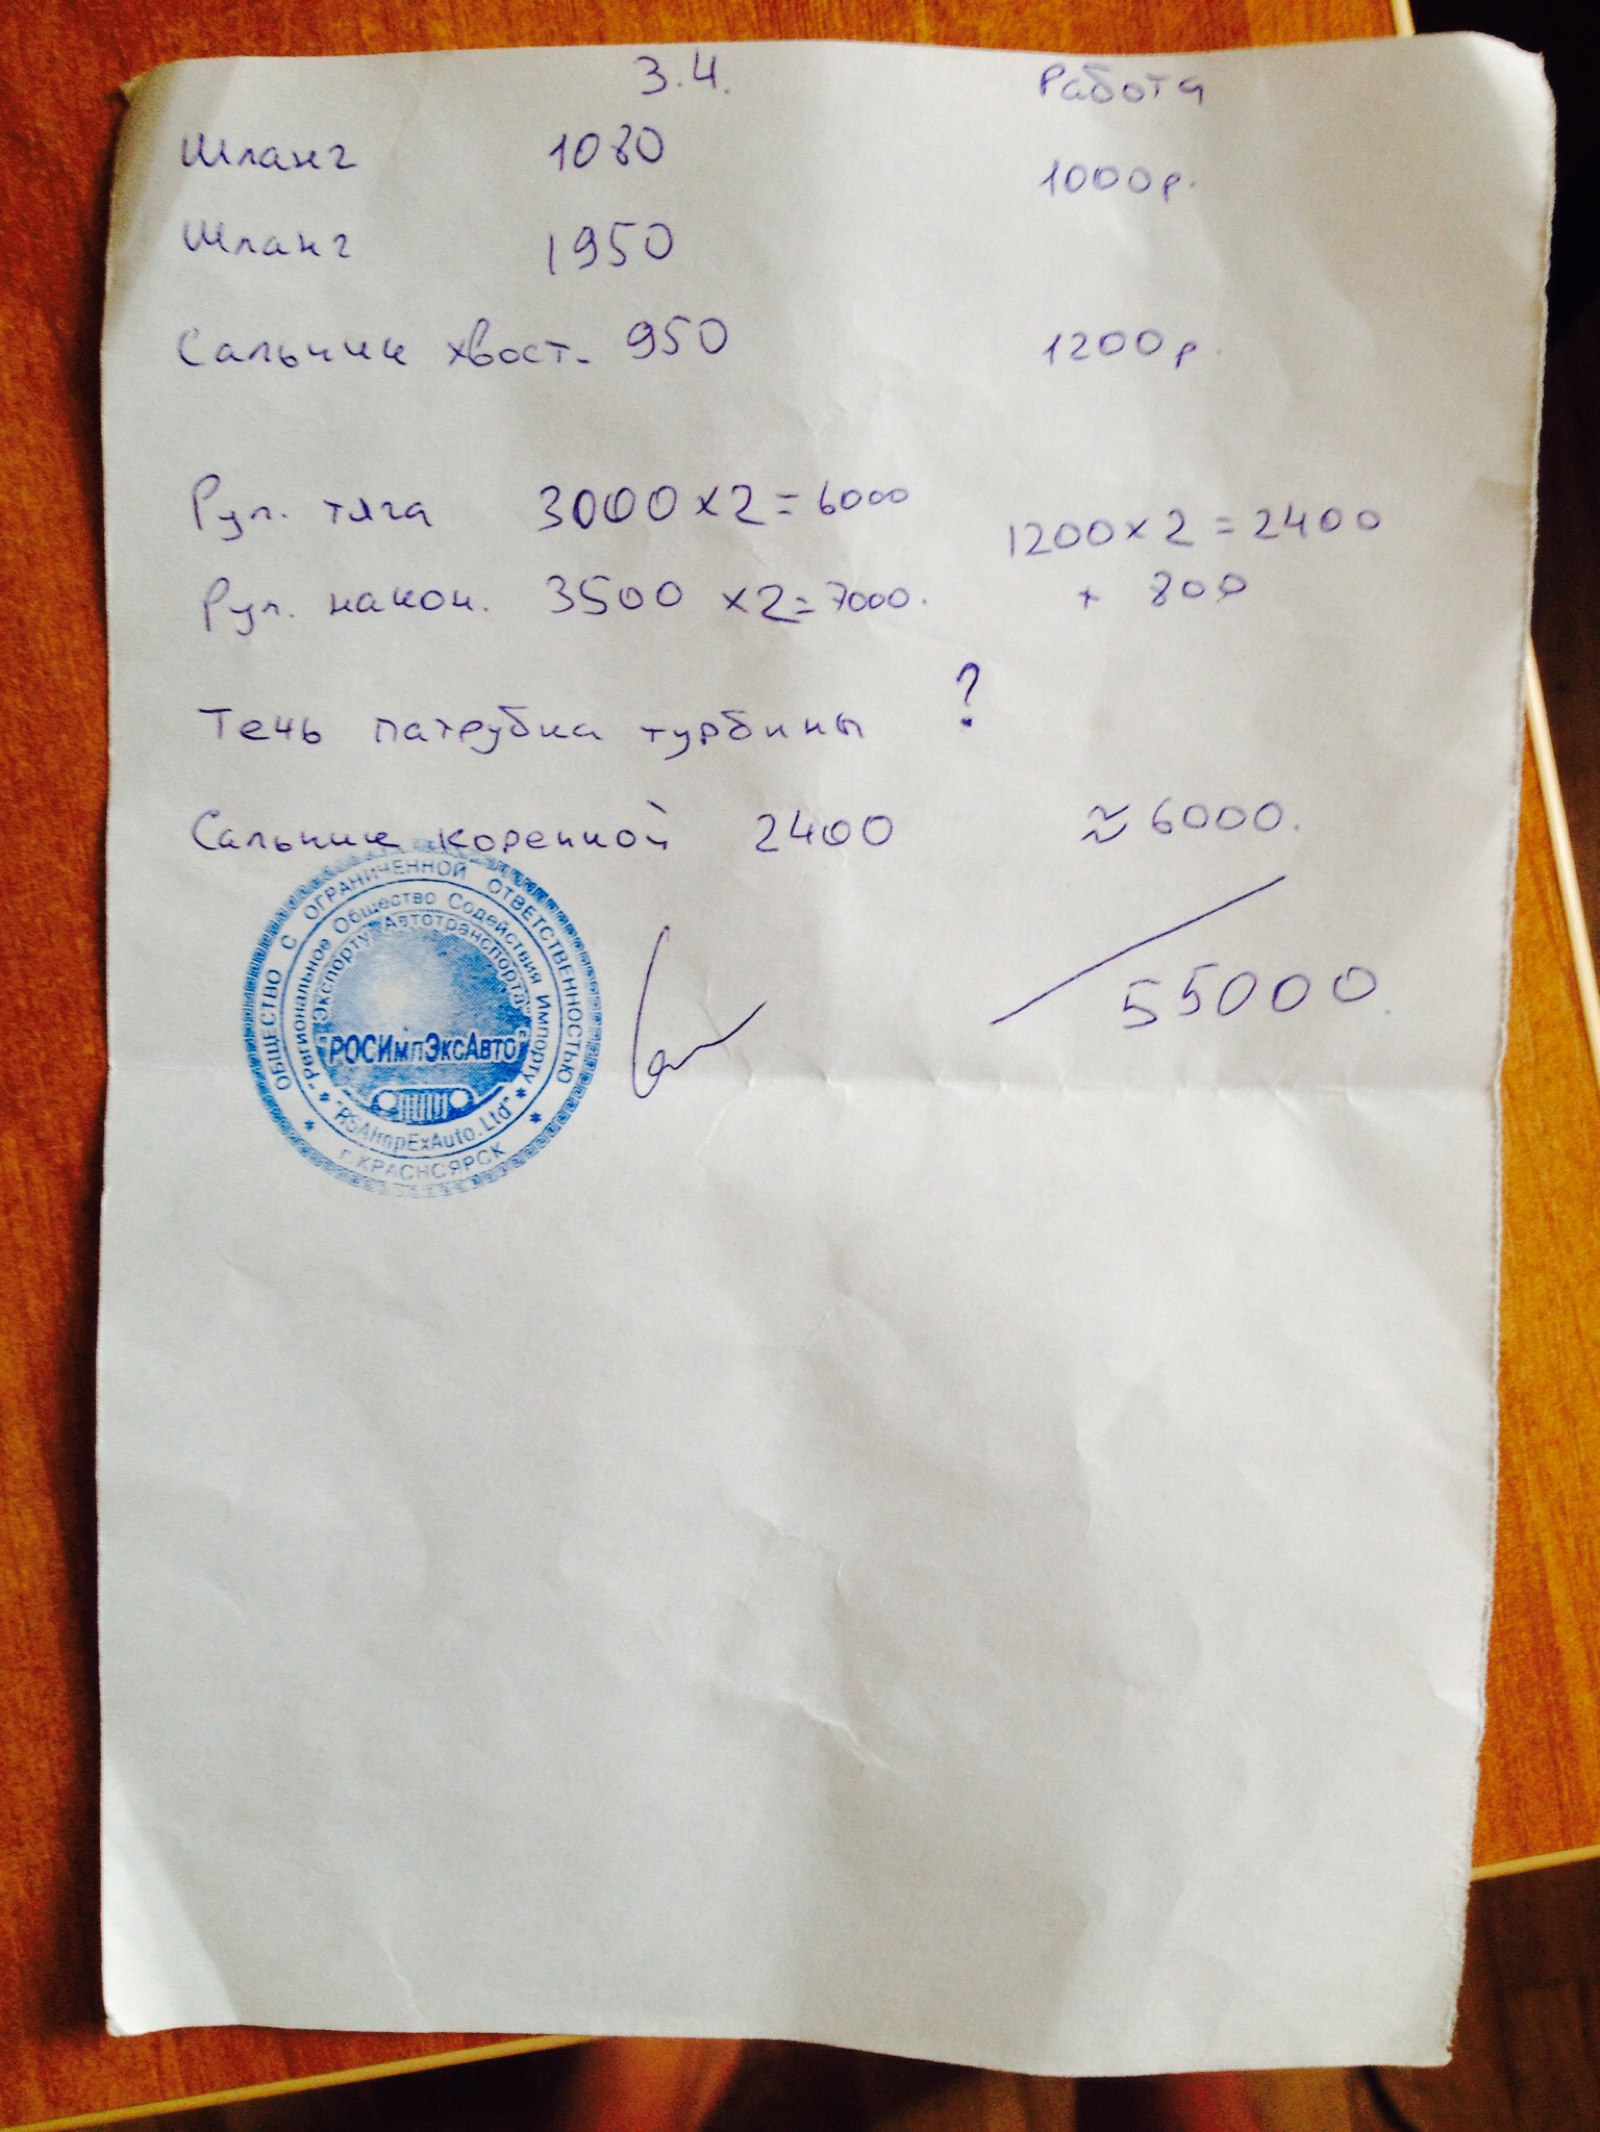 З.Ч. Работа
Шланг 1080 1000р.
Шланг 1950
Сальник хвост. 950 1200р.
Рул. тяга 3000 x 2 = 6000 1200 x 2 = 2400
Рул. након. 3500 x 2 = 7000. + 800
Течь патрубка турбины ?
Сальник коренной 2400 ≈ 6000.
55000.
ОБЩЕСТВО С ОГРАНИЧЕННОЙ ОТВЕТСТВЕННОСТЬЮ
"Региональное Общество Содействия Импорту
Экспорту Автотранспорта"
"РОСИмпЭксАвто"
"RSAImpExAuto.Ltd"
г. КРАСНОЯРСК